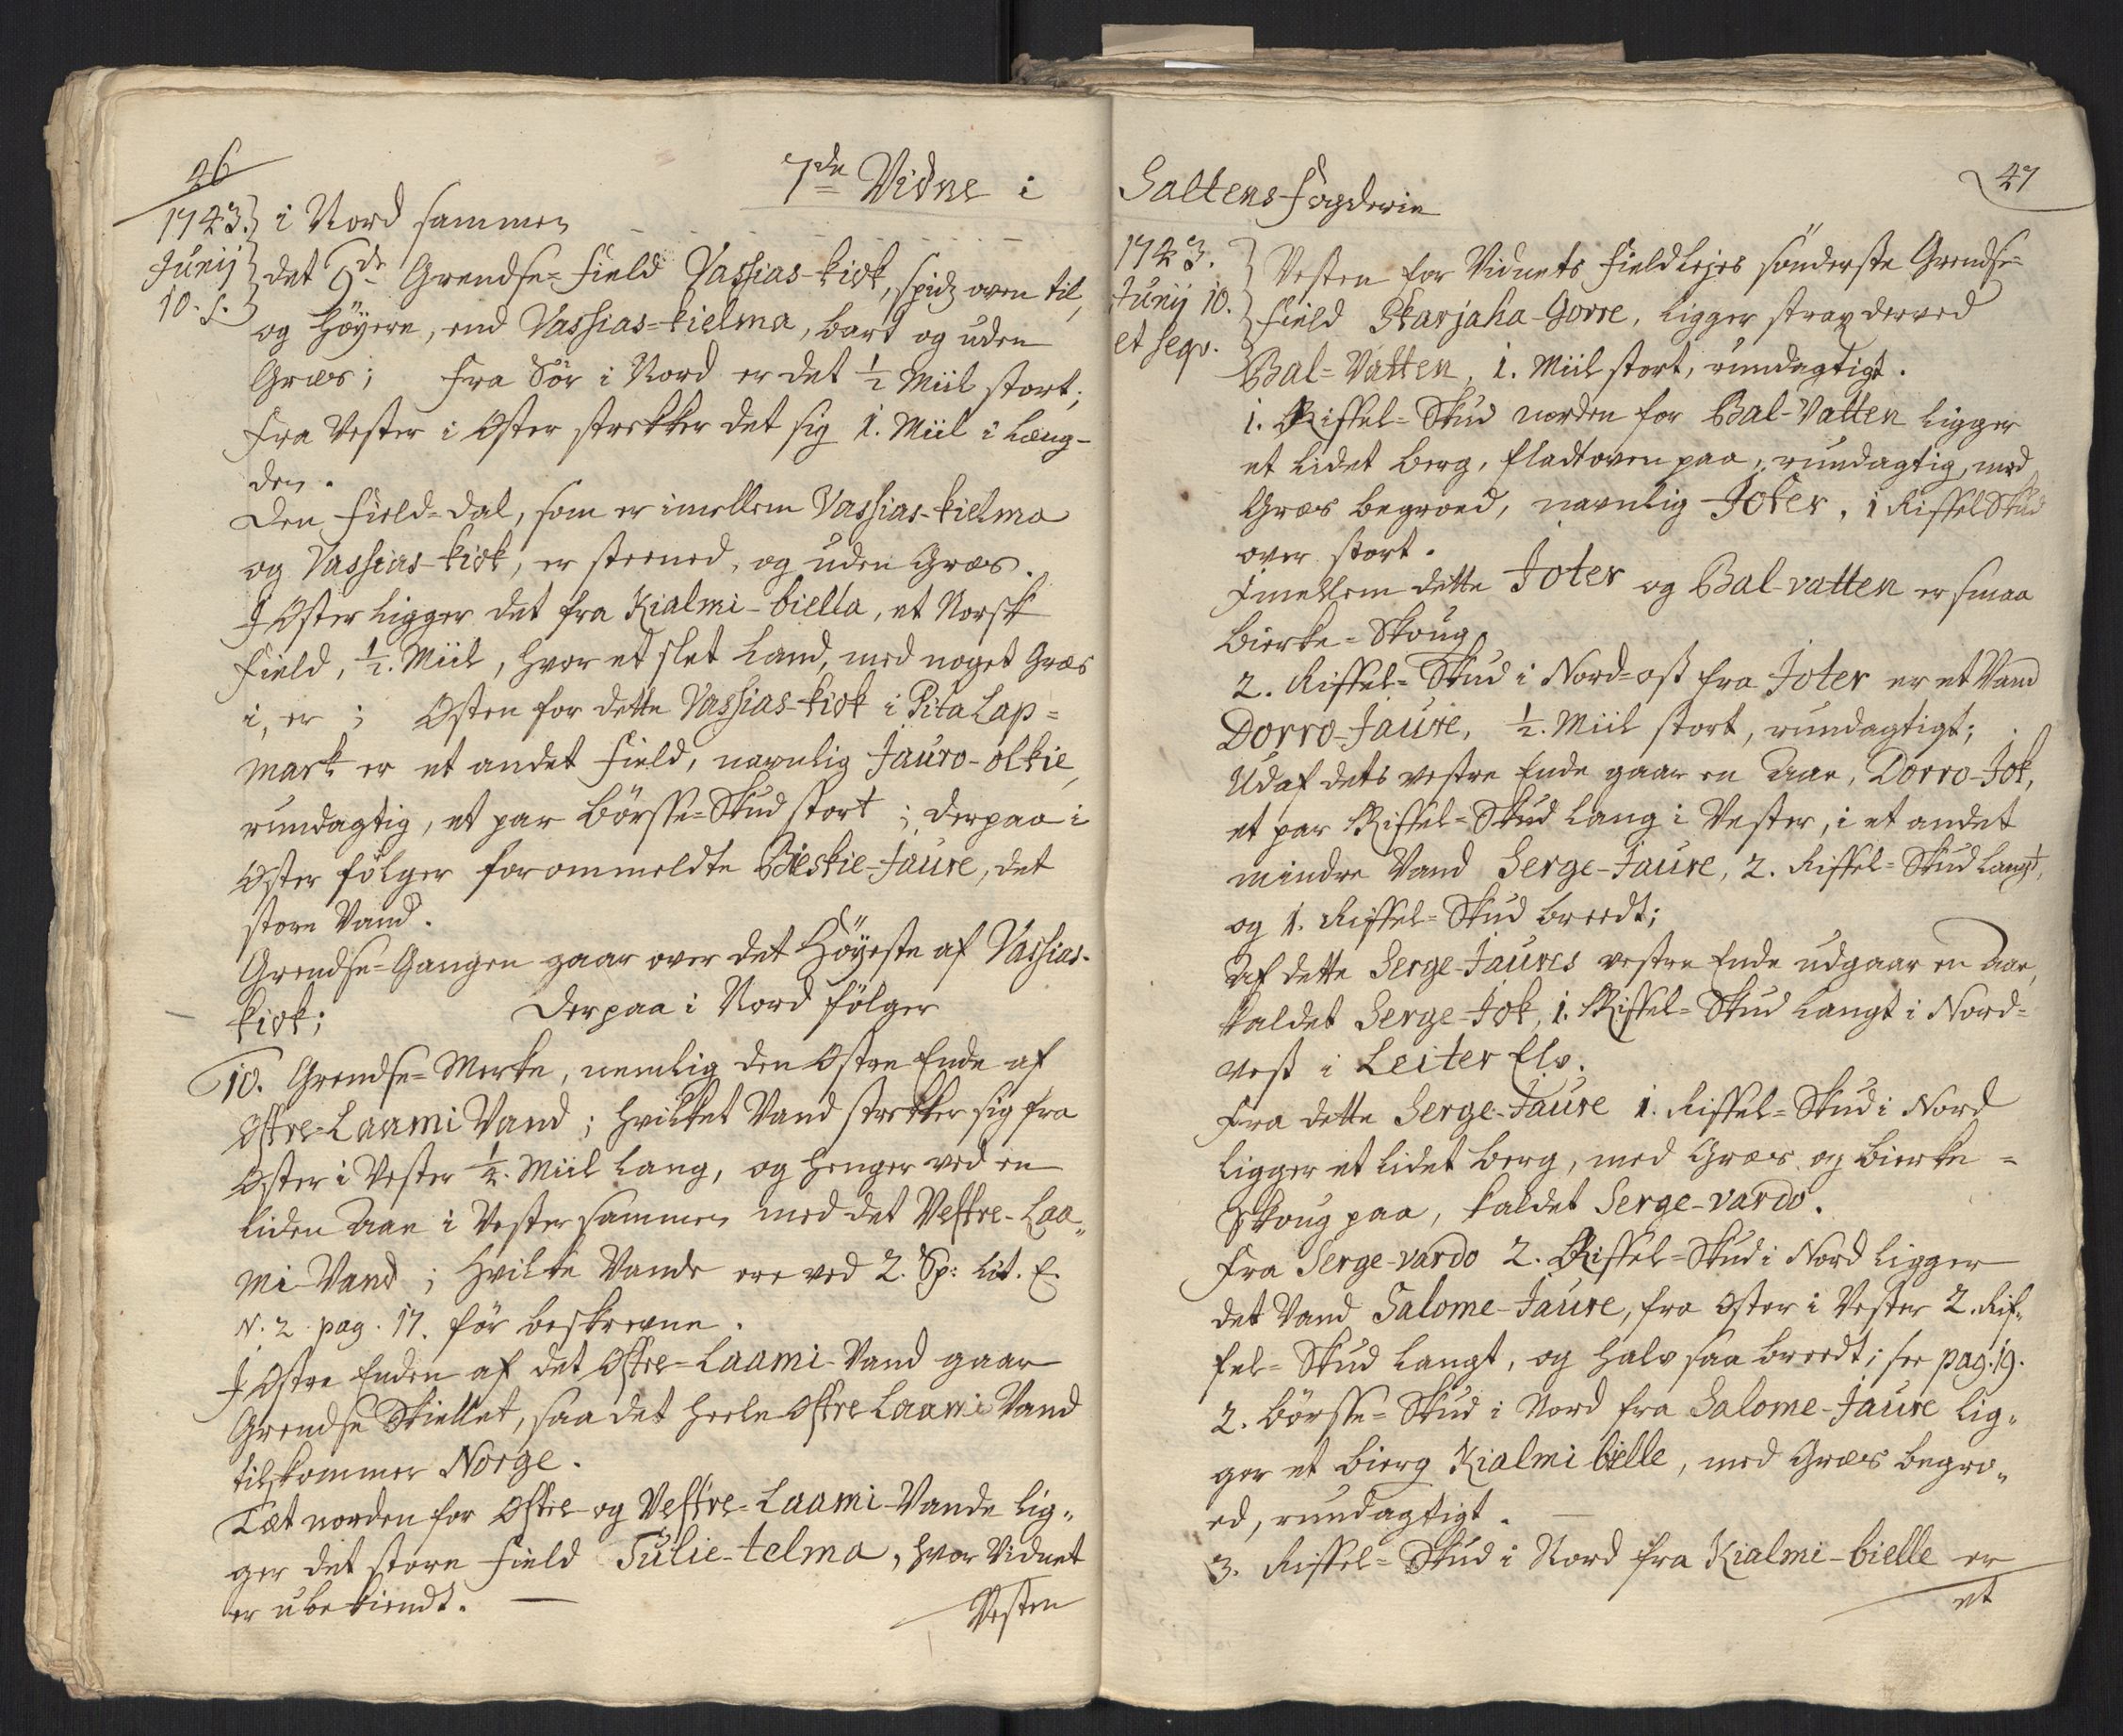 26
7de Vidne i
1743.
Junij
10. s.
i Nord sammen
det 9de Grendse-Field Vassias-kiok, spidz oven til,
og höyere, end Vassias-kielma, bart og uden
Græs; Fra Sör i Nord er det ½ Miil stort;
Fra Vester i Oster strekker det sig 1. Miil i Læng-
den.
Den Field-dal, som er imellem Vassias-kielma
og Vassias-kiok, er steened, og uden Græs.
I Oster ligger det fra Kialmi-biella, et Norsk
Field, ½. Miil, hvor et slet Land, med noget Græs
i, er; Osten for dette Vassias-kiok i Pita Lap=
mark er et andet Field, navnlig Jauro-olkie,
rundagtig, et par Börsse-Skud stort; derpaa i
Oster fölger forommeldte Bieskie-Jaure, det
store Vand.
Grendse-Gangen gaar over det Höyeste af Vassias-
kiok; Derpaa i Nord fölger
10. Grendse-Merke, nemlig den Ostre Ende af
Ostre-Laami Vand; hvilket Vand strekker sig fra
Oster i Vester ½. Miil lang, og henger ved en
liden Aae i Vester sammen med det Vestre-Laa-
mi-Vand; hvilke Vande ere ved 2. Sp: Lit. E.
N. 2 pag. 17. för beskrevne.
I Ostre Enden af det Ostre-Laami-Vand gaar
Grendse Skiellet, saa det heele Ostre Laami Vand
tilkommer Norge.
Tæt norden for Ostre- og Vestre-Laami-Vande lig-
ger det store Field Sulie-telma, hvor Vidnet
er ubekiendt.
Vesten
Saltens Fogderie
47
1743.
Junij 10.
et seqv.
Vesten for Vidnets Fieldlejes sönderste Grendse-
Field Skarjaha-Gorre, ligger strax derved
Bal-Vatten, 1. Miil stort, rundagtigt.
1. Riffel-Skud norden for Bal-Vatten ligger
et lidet Berg, fladt oven paa, rundagtig, med
Græs begroed, navnlig Joter, 1 Riffel Skud
over stort.
Imellem dette Joter og Bal-vatten er smaa
Bierke-Skoug
2. Riffel-Skud i Nord-ost fra Joter er et Vand
Dorro-Jaure, ½. Miil stort, rundagtigt;
Udaf dets vestre Ende gaar en Aae, Dorro-Jok,
et par Riffel-Skud lang i Vester, i et andet
mindre Vand Serge-Jaure, 2. Riffel-Skud langt,
og 1. Riffel-Skud breedt;
Af dette Serge-Jaures vestre Ende udgaar en Aae,
kaldet Serge-Jok, 1. Riffel-Skud langt i Nord-
vest i Leiter Elv.
Fra dette Serge-Jaure 1. Riffel-Skud i Nord
ligger et lidet Berg, med Græs og Bierke-
Skoug paa, kaldet Serge-vardo.
Fra Serge-vardo 2. Riffel-Skud i Nord ligger
det Vand Salome-Jaure, fra Oster i Vester 2. Rif-
fel-Skud langt, og halv saa breedt; see pag. 19.
2. Börsse-Skud i Nord fra Salome-Jaure lig-
ger et Bierg Kialmi bielle, med Græs begro-
ed, rundagtigt.
3. Riffel-Skud i Nord fra Kialmi-bielle er
et